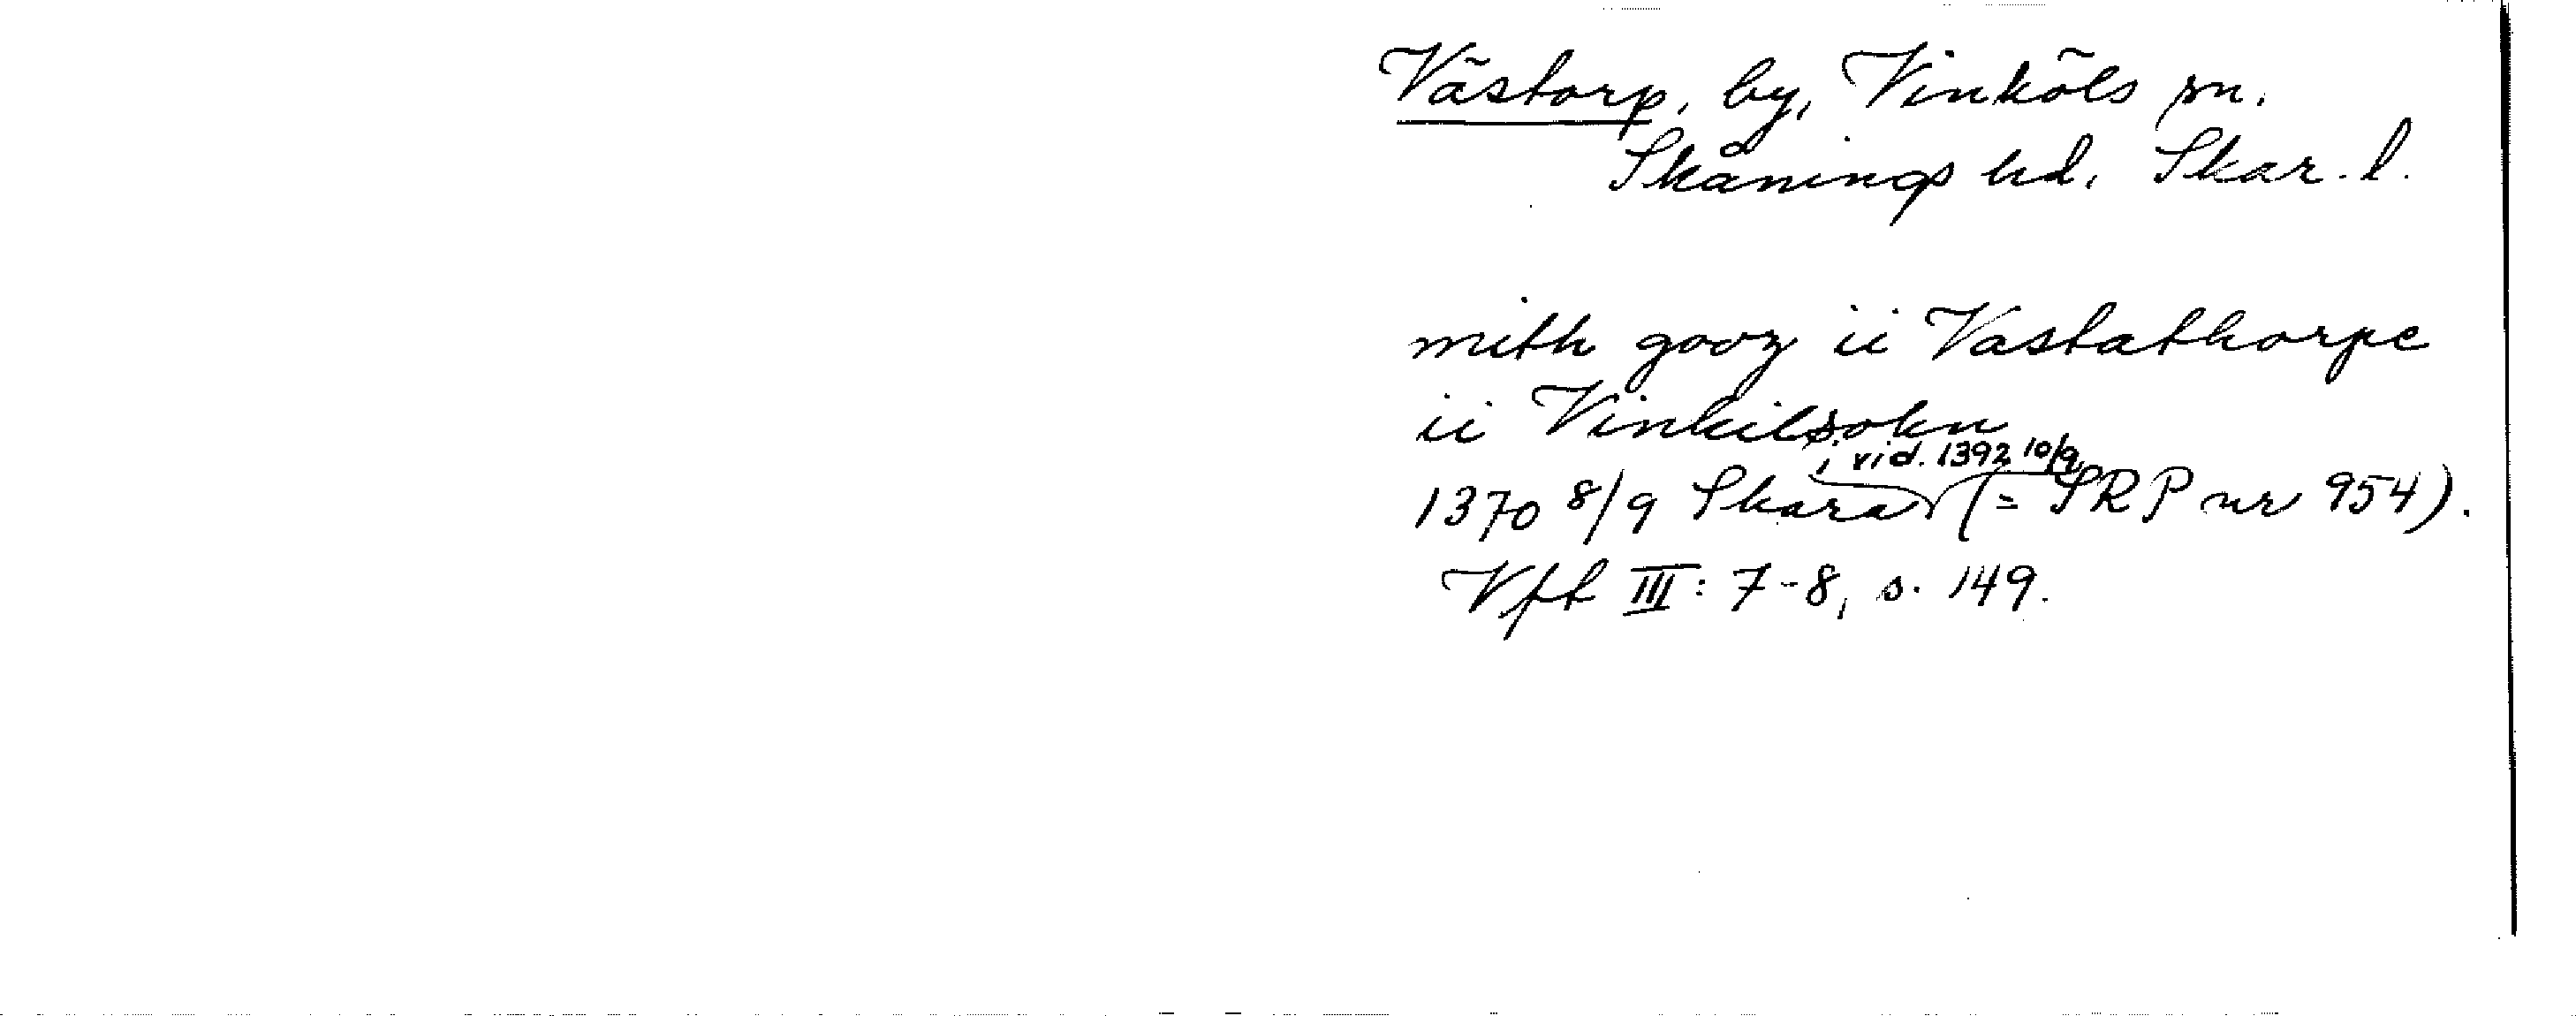 Västorp, by, Vinköls sn.
Skånings hd. Skar. l.
mith gooz ii Vastathorpe
ii Vinkilsokn
i vid. 1392 10/9
1370 8/9 Skara (= SRP nr 954).
Vft III: 7-8, s. 149.